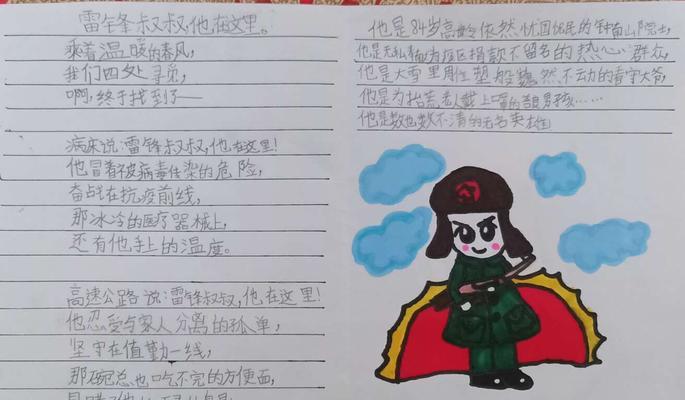 雷锋叔叔,他在这里。
乘着温暖的春风,
我们四处寻觅,
啊,终于找到了——
病床说:雷锋叔叔,他在这里!
他冒着被病毒传染的危险,
奋战在抗疫前线,
那冰冷的医疗器械上,
还有他手上的温度。
高速公路说:雷锋叔叔,他在这里!
他忍受与家人分离的孤单,
坚守在值勤一线,
那碗总也吃不完的方便面,
他是84岁高龄依然忧国忧民的钟南山院士,
他是无私为疫区捐款不留名的热心群众,
他是大雪里用性塑般巍然不动的看守大爷,
他是为拾荒老人戴上口罩的男孩……
他是数也数不清的无名英雄